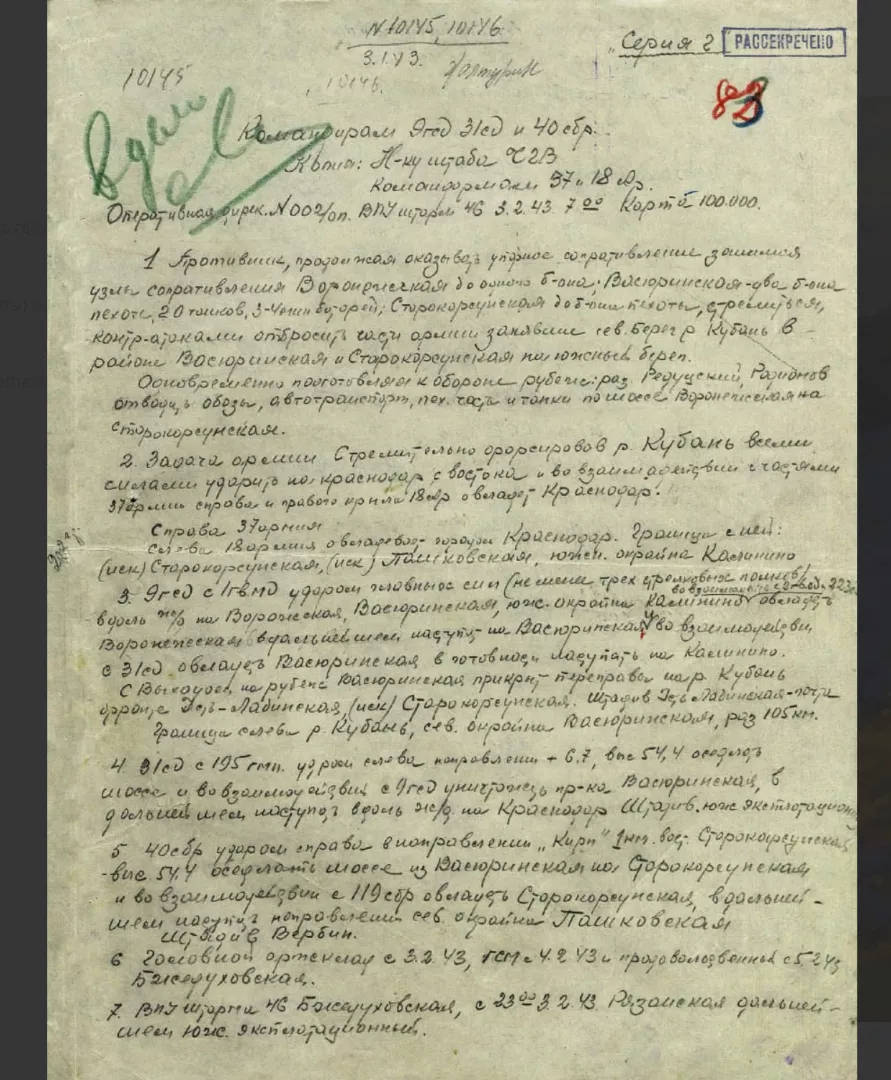 N 10145, 10146
3.1.43.
"Серия 2 РАССЕКРЕЧЕНО
10145
10146.
83
Командирам 9гсд 31сд и 40сбр.
Копия: Н-ку штаба ЧГВ
Командармам 37 и 18 Ар.
Оперативная дирек. N 002/оп. ВПУ штарм 46 3.2.43. 7 00 Карта 100.000.
1 Противник, продолжая оказывать упорное сопротивление занимая
узлы сопротивления Воронежская до одного б-она; Васюринская-два б-она
пехоты, 20 танков, 3-4 батарей; Старокорсунская до б-она пехоты, стремиться,
контр-атаками отбросить части армии занявшие сев. берег р Кубань в -
районе Васюринская и Старокорсунская на южный берег.
Одновременно подготовляя к обороне рубеж: раз. Редуцский,
отводить обозы, автотранспорт, пех. часть и танки по шоссе Воронежская на
Старокорсунская.
2. Задача армии. Стремительно форсировав р. Кубань всеми
силами ударить на Краснодар с востока и во взаимодействии с частями
37армии справа и правого крыла 18Ар овладеть Краснодар.
Справа 37армия
Слева 18армия овладевает городом Краснодар. Граница с ней:
(иск) Старокорсунская, (иск) Пашковская, южн. окрайна Калинино
3. 9гсд с 1гвмд ударом главных сил (не менее трех стрелковых полков)
во взаимод.
вдоль ж/д на Воронежская, Васюринская, юж. окрайна Калинино овладеть
Воронежская в дальнейшем наступать на Васюринская во взаимодействи
с 31сд овладеть Васюринская в готовности наступать на Калинино.
С выходом на рубеж Васюринская прикрыть переправы на р. Кубань
фронте Усть-Лабинская, (иск) Старокорсунская. Штадив Усть-Лабинская-почта
Граница слева р. Кубань, сев. окрайна Васюринская, раз 105 км.
4. 31сд с 195 гмп. ударом слева направлении + 6,7, выс 54,4 оседлать
шоссе и во взаимодействии с 9гсд уничтожить пр-ка Васюринская, в
дальнейшем наступать вдоль ж/д. на Краснодар Штадив. юж Эксплотационн
5 40сбр ударом справа в направлении „Кирп" 1км. вост. Старокорсунская
-выс 54.4 оседлать шоссе из Васюринская на Старокорсунская
и во взаимодействии с 119сбр овладеть Старокорсунская, в дальней-
шем наступать направлении сев. окрайна Пашковская
Штадив Вербин.
6 Головной артсклад с 3.2.43, ГСМ с 4.2.43 и продовольственный с 5.2.43
Бжедуховская.
7. ВПУ штарма 46 Бжедуховская, с 23 00 3.2.43. Рязанская дальней-
шем юж. Эксплотационный.